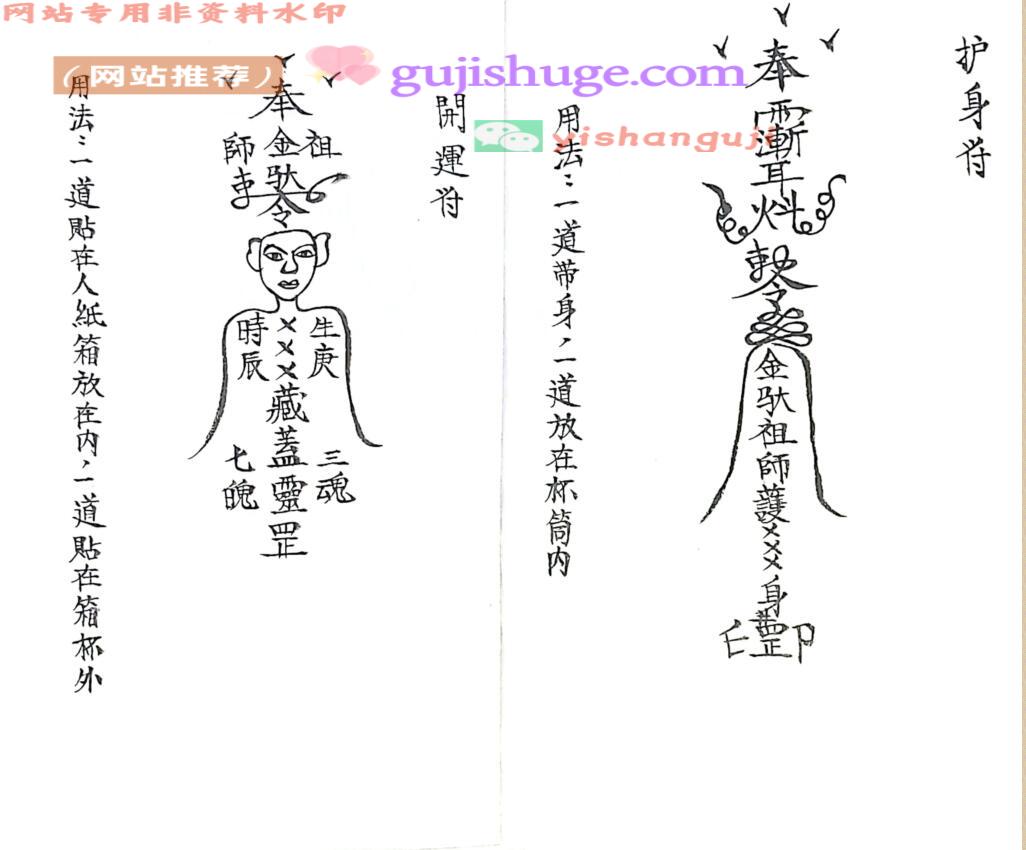 网站专用非资料水印
(网站推荐)
gujishuge.com
yishanguji
护身符
奉
令
金馱祖師護×××身
罡
用法：一道带身，一道放在杯筒内
開運符
奉
祖師
金馱
令
生庚
時辰
×××藏蓋靈罡
三魂
七魄
用法：一道貼在人紙箱放在内，一道貼在箱杯外